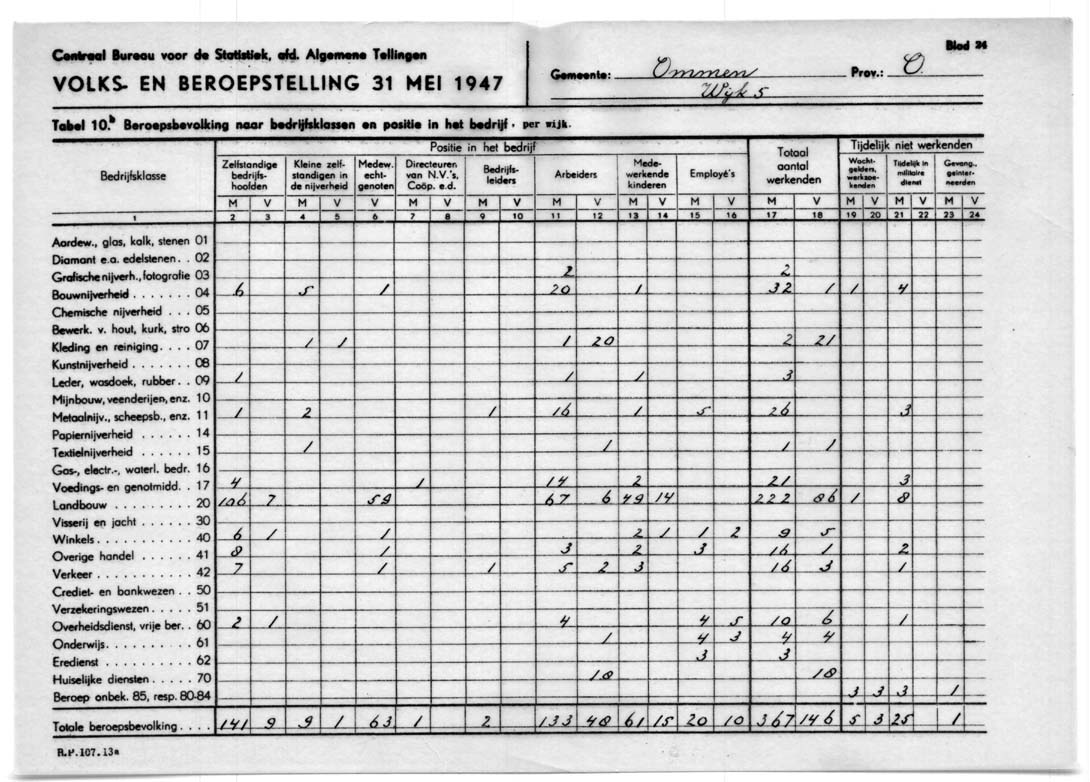 Centraal Bureau voor de Statistiek, afd. Algemene Tellingen
VOLKS- EN BEROEPSTELLING 31 MEI 1947
Gemeente: Ommen Prov.: O.
Wijk 5
Blad 24
Tabel 10.b Beroepsbevolking naar bedrijfsklassen en positie in het bedrijf, per wijk.
Bedrijfsklasse
Positie in het bedrijf
Totaal aantal werkenden
Tijdelijk niet werkenden
Zelfstandige bedrijfs-hoofden
Kleine zelf-standigen in de nijverheid
Medew. echt-genoten
Directeuren van N.V.'s, Coöp. e.d.
Bedrijfs-leiders
Arbeiders
Mede-werkende kinderen
Employé's
Wacht-gelders, werkzoe-kenden
Tijdelijk in militaire dienst
Gevang., geïnter-neerden
M V M V V M V M V M V M V M V M V M V M V M V
1 2 3 4 5 6 7 8 9 10 11 12 13 14 15 16 17 18 19 20 21 22 23 24
Aardew., glas, kalk, stenen 01
Diamant e.a. edelstenen. . 02
Grafische nijverh., fotografie 03 2 2
Bouwnijverheid . . . . . . . 04 6 5 1 20 1 32 1 1 4
Chemische nijverheid . . . 05
Bewerk. v. hout, kurk, stro 06
Kleding en reiniging. . . . 07 1 1 1 20 2 21
Kunstnijverheid . . . . . . . 08
Leder, wasdoek, rubber. . 09 1 1 1 3
Mijnbouw, veenderijen, enz. 10
Metaalnijv., scheepsb., enz. 11 1 2 1 16 1 5 26 3
Papiernijverheid . . . . . . 14
Textielnijverheid . . . . . . 15 1 1 1 1
Gas-, electr.-, waterl. bedr. 16
Voedings- en genotmidd. . 17 4 1 14 2 21 3
Landbouw . . . . . . . . . 20 106 7 59 67 6 49 14 222 86 1 8
Visserij en jacht . . . . . . 30
Winkels . . . . . . . . . . . 40 6 1 1 2 1 1 2 9 5
Overige handel . . . . . . 41 8 1 3 2 3 16 1 2
Verkeer . . . . . . . . . . . 42 7 1 1 5 2 3 16 3 1
Crediet- en bankwezen . . 50
Verzekeringswezen. . . . . 51
Overheidsdienst, vrije ber. . 60 2 1 4 4 5 10 6 1
Onderwijs. . . . . . . . . . 61 1 4 3 4 4
Eredienst . . . . . . . . . . 62 3 3
Huiselijke diensten . . . . . 70 18 18
Beroep onbek. 85, resp. 80-84 3 3 3 1
Totale beroepsbevolking . . . . 141 9 9 1 63 1 2 133 48 61 15 20 10 367 146 5 3 25 1
R.P.107.13a